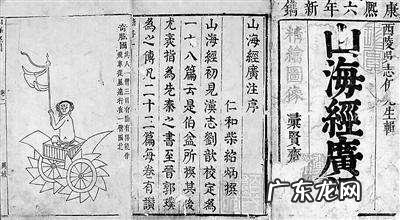 康熙六年新鐫
西陵吳志伊先生輯
山海經廣
精繪圖像
彙賢齋
山海經廣注序
仁和柴紹炳撰
山海經初見漢志劉歆校定為
一十八篇云是伯益所撰其後
尤袤指為先秦之書至晉郭璞
為之傳凡二十二篇每卷有讚
奇肱國
一臂國北
广东龙网